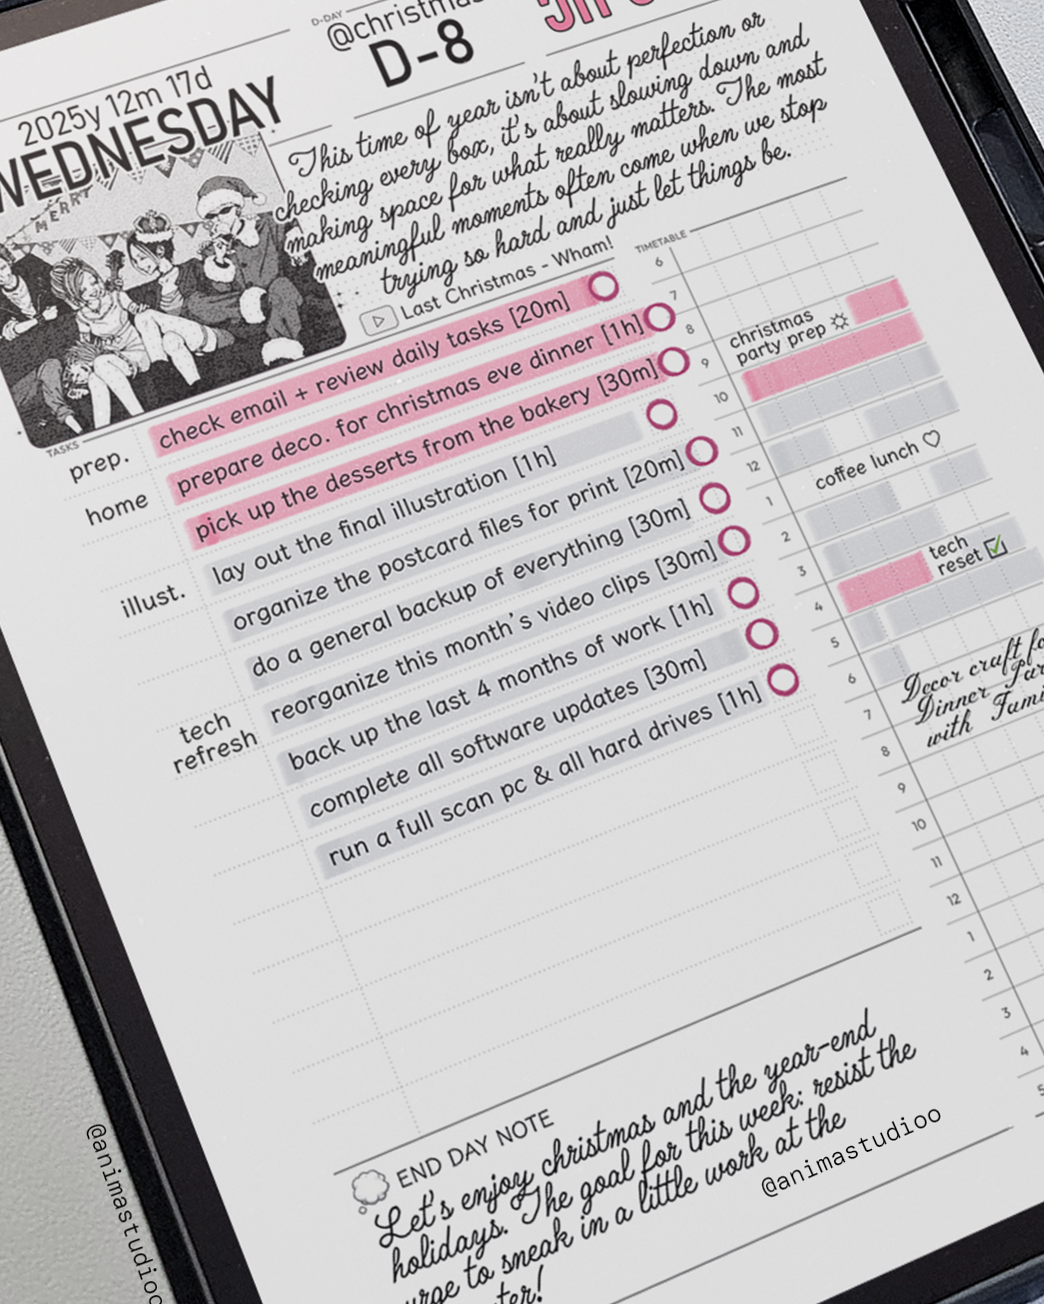 D-DAY
@christmas
D-8
2025y 12m 17d
WEDNESDAY
MERRY
This time of year isn't about perfection or
checking every box, it's about slowing down and
making space for what really matters. The most
meaningful moments often come when we stop
trying so hard and just let things be.
Last Christmas - Wham!
TASKS
prep.
home
illust.
tech
refresh
check email + review daily tasks [20m]
prepare deco. for christmas eve dinner [1h]
pick up the desserts from the bakery [30m]
lay out the final illustration [1h]
organize the postcard files for print [20m]
do a general backup of everything [30m]
reorganize this month's video clips [30m]
back up the last 4 months of work [1h]
complete all software updates [30m]
run a full scan pc & all hard drives [1h]
TIMETABLE
6
7
8
christmas
party prep
9
10
11
12
coffee lunch ♡
1
2
3
tech
reset ✅
4
5
6
Decor craft
Dinner
with
7
8
9
10
11
12
1
2
3
4
5
END DAY NOTE
Let's enjoy christmas and the year-end
holidays. The goal for this week: resist the
urge to sneak in a little work at the
@animastudioo
@animastudioo